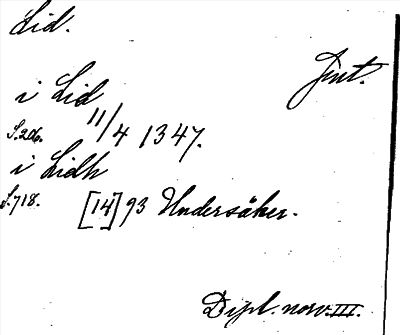 Lid.
Jmt.
i Lid
S.206. 11/4 1347.
i Lidh
S.718. [14]93 Undersåker.
Dipl. norv. III.